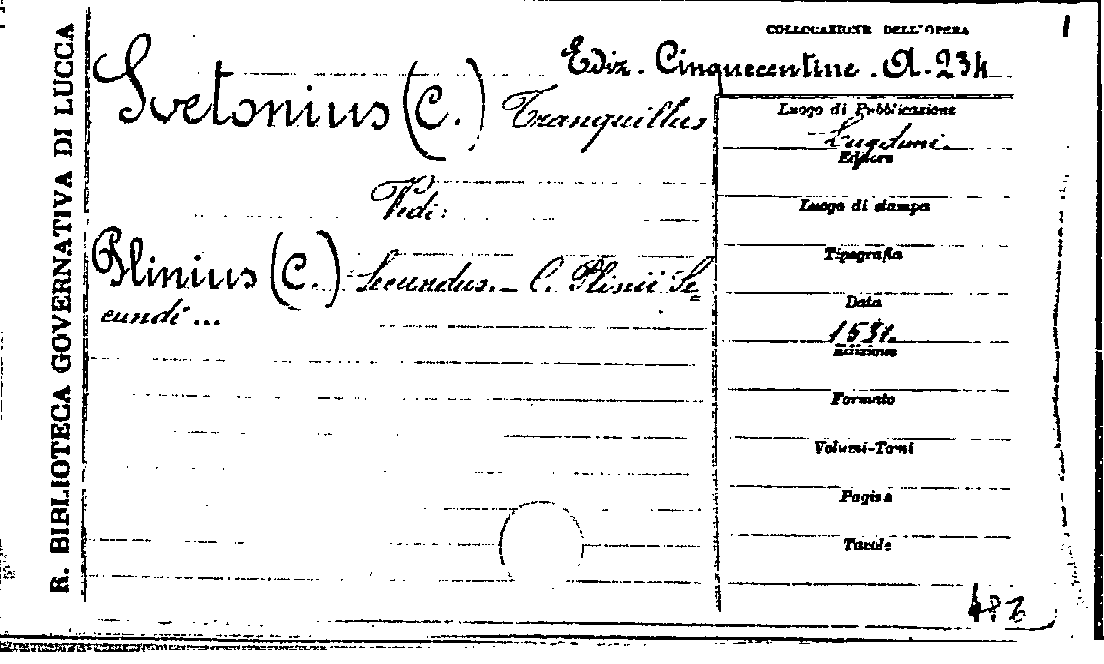 R. BIBLIOTECA GOVERNATIVA DI LUCCA
COLLOCAZIONE DELL'OPERA
1
Ediz. Cinquecentine. A. 234
Svetonius (C.) Tranquillus
Vedi:
Plinius (C.) Secundus. - C. Plinii Se=
cundi ...
Luogo di Pubblicazione
Lugduni.
Editore
Luogo di stampa
Tipografia
Data
1531.
Edizione
Formato
Volumi-Tomi
Pagine
Tavole